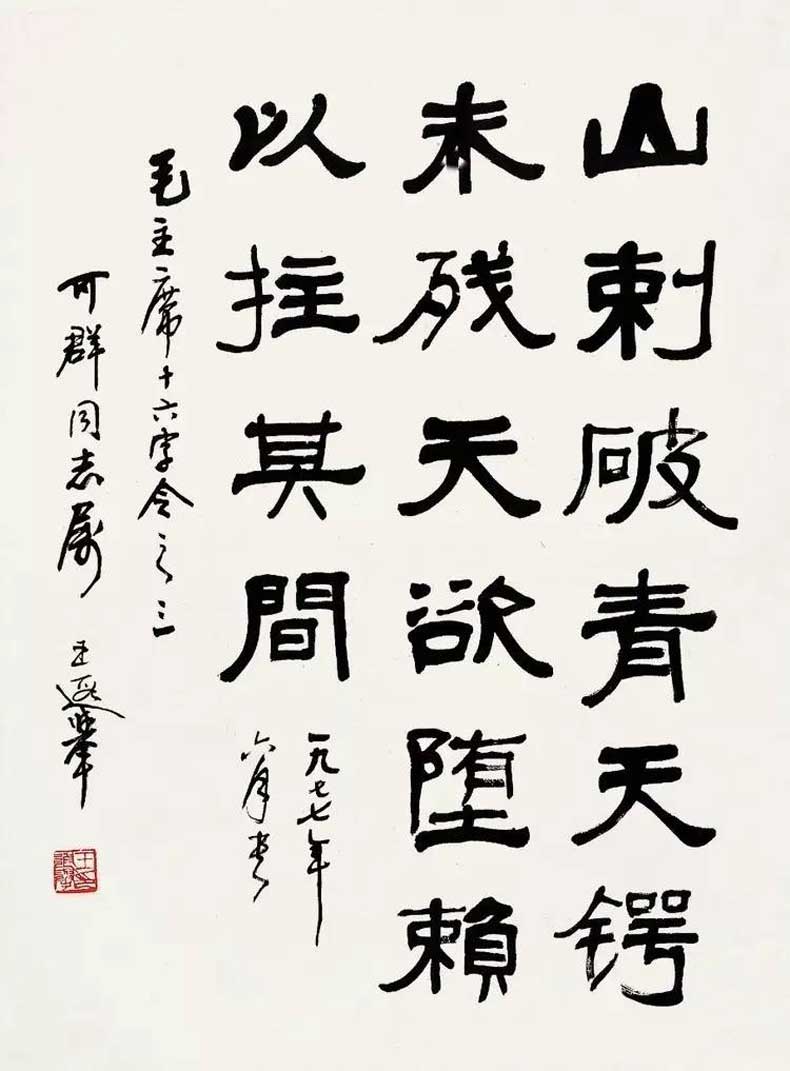 山刺破青天锷
未残天欲堕賴
以拄其間
一九七七年
六月书
毛主席十六字令之三
可群同志属
王遐举